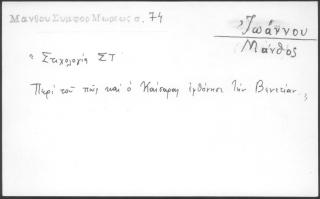 Μανθου Συμφορ Μωρεως σ. 74
Ἰωάννου
Μάνθος
"Στιχολογία ΣΤ΄
Περί τοῦ πῶς καί ὁ Καίσαρας ἐφθόνησε τήν Βενετίαν,